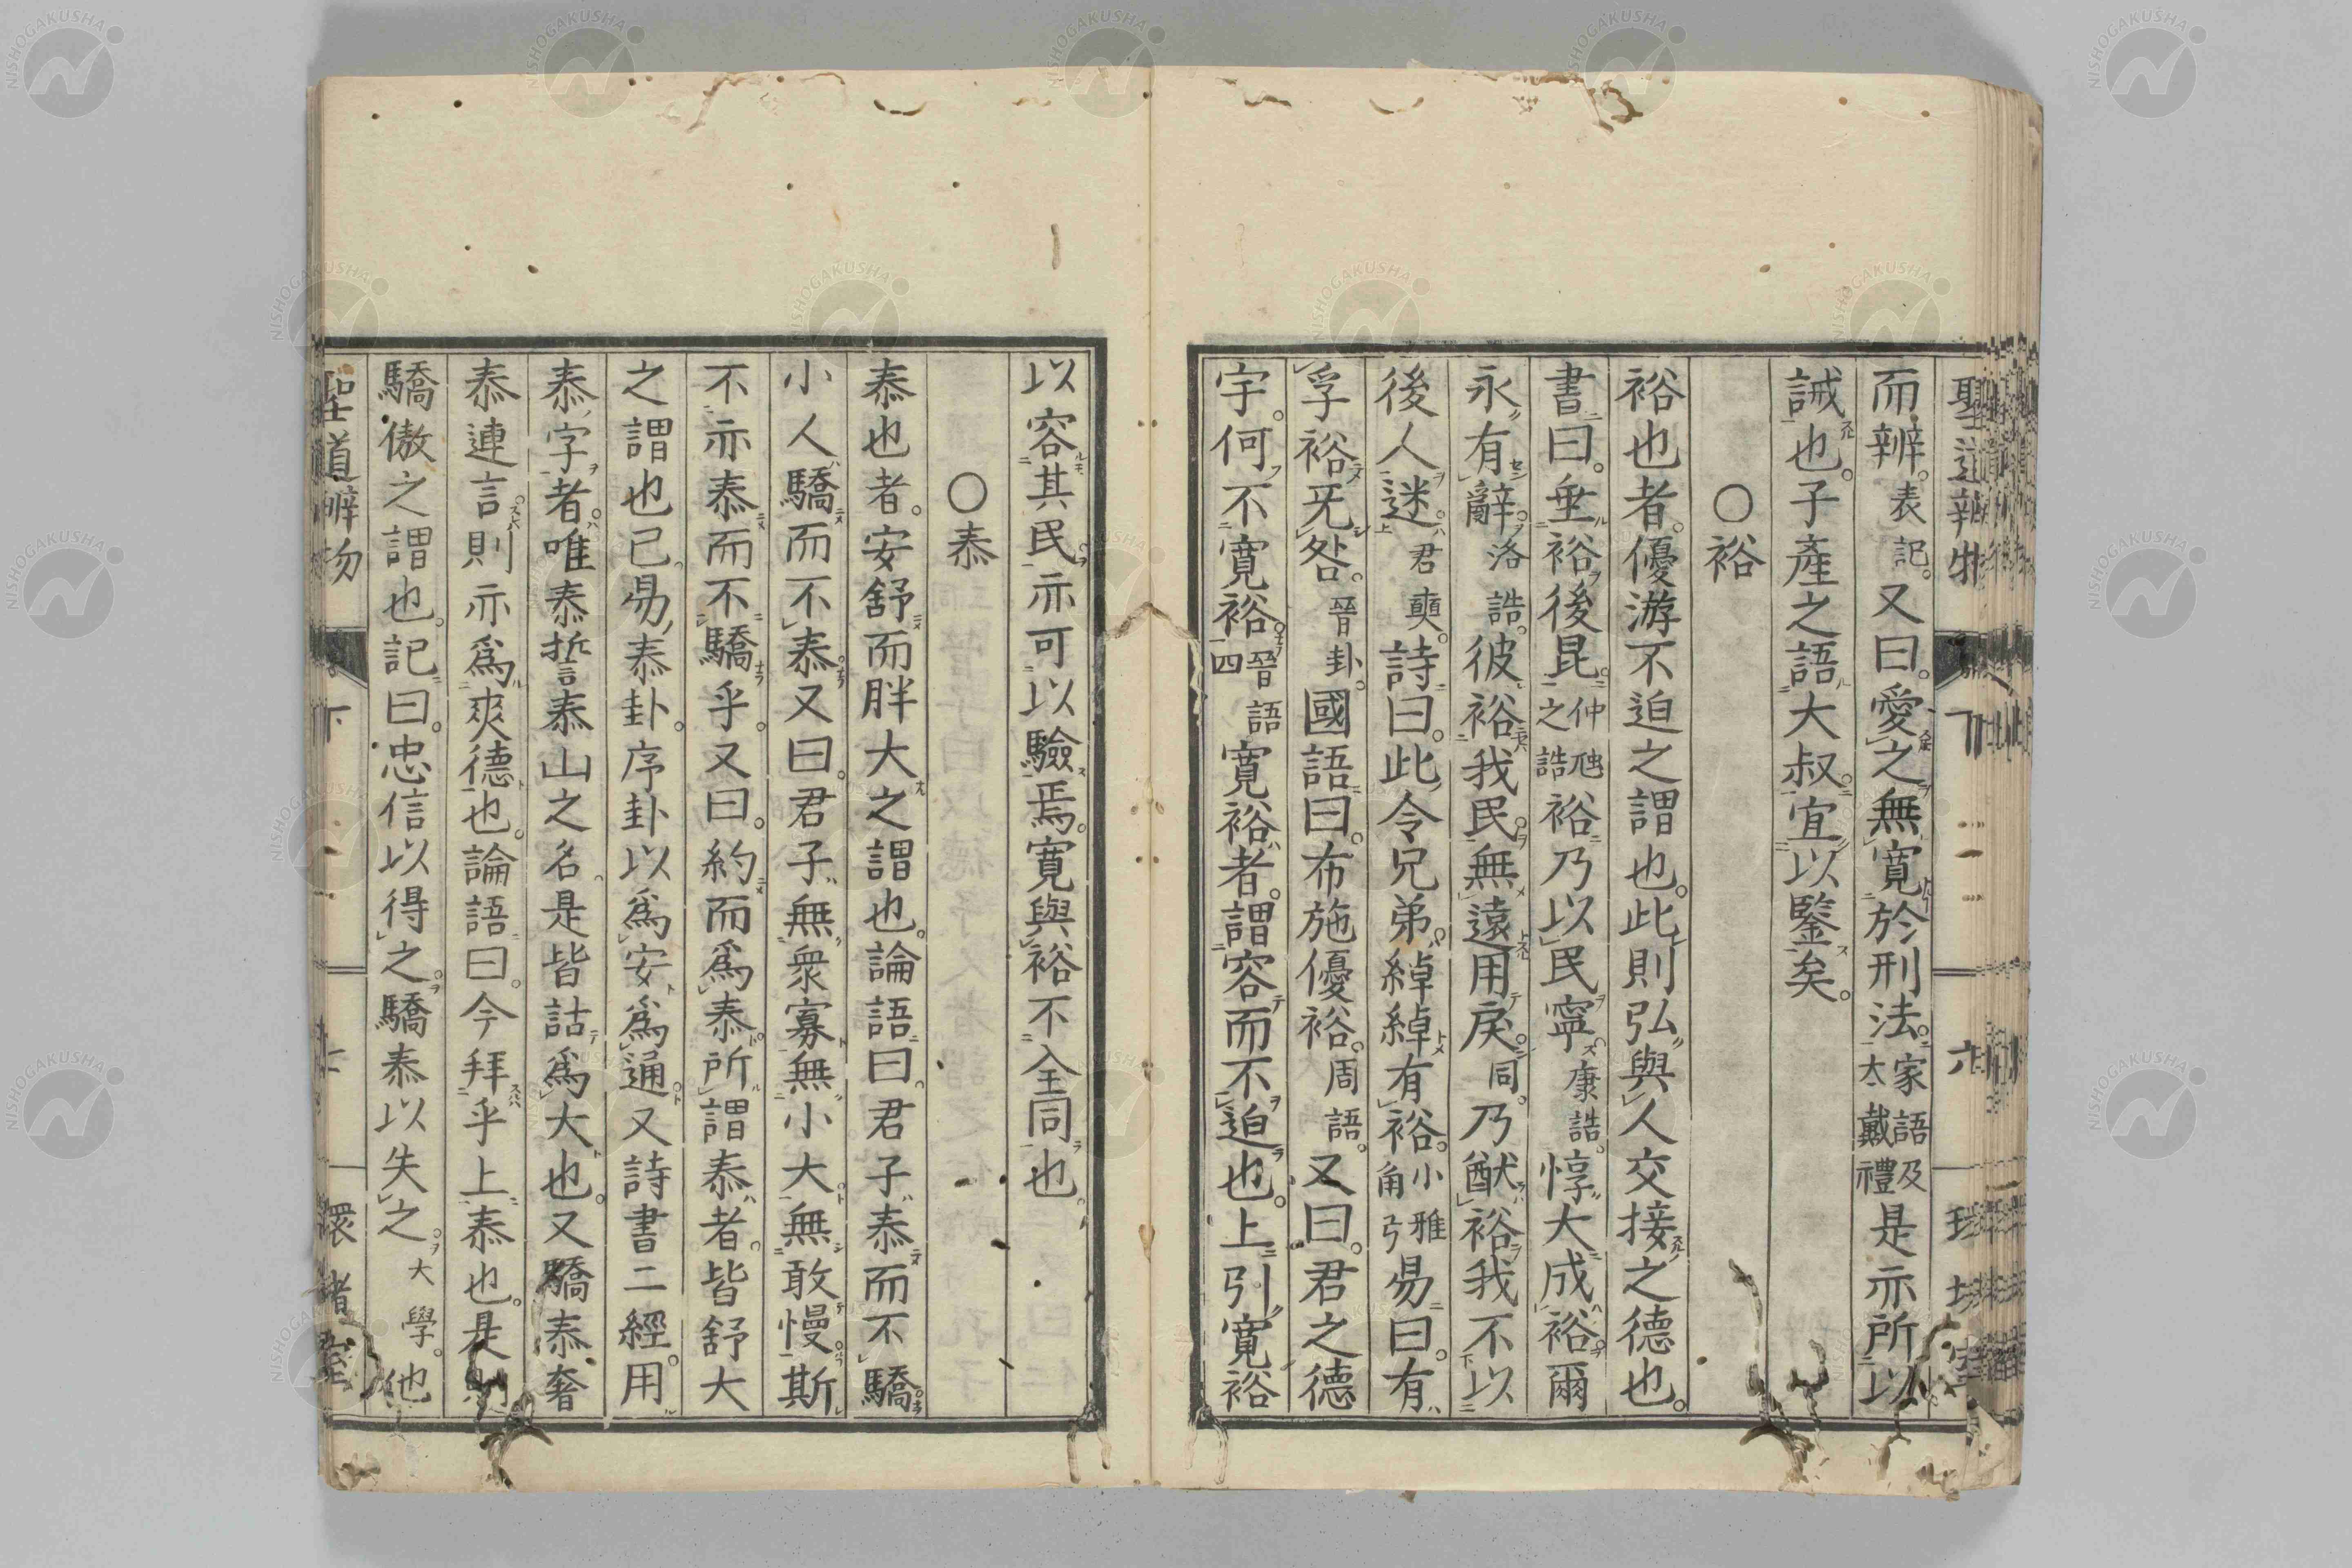 聖道辨物 下 六
而辨。表記。又曰。愛之無寬於刑法。家語及大戴禮是亦所以
誡也。子產之語大叔。宜以鑒矣。
○裕
裕也者。優游不迫之謂也。此則弘與人交接之德也。
書曰。垂裕後昆。仲虺之誥裕乃以民寧。康誥。惇大成裕。爾
永有辭。洛誥。彼裕我民。無遠用戾。同。乃猷裕我不以
後人迷。君奭。詩曰。此令兄弟。綽綽有裕。小雅角弓易曰。有
孚裕无咎。晉卦。國語曰。布施優裕。周語。又曰。君之德
宇。何不寬裕。晉語四寬裕者。謂容而不迫也。上引寬裕
以容其民。亦可以驗焉。寬與裕不全同也。
○泰
泰也者。安舒而胖大之謂也。論語曰。君子泰而不驕。
小人驕而不泰。又曰。君子無衆寡無小大。無敢慢斯
不亦泰而不驕乎。又曰。約而爲泰。所謂泰者。皆舒大
之謂也已。易泰卦。序卦以爲安爲通。又詩書二經。用
泰字者。唯泰誓泰山之名。是皆詁爲大也。又驕泰奢
泰連言。則亦爲爽德也。論語曰。今拜乎上。泰也。是則
驕傲之謂也。記曰。忠信以得之。驕泰以失之。大學。他
聖道辨物 下 環堵室
NISHOGAKUSHA